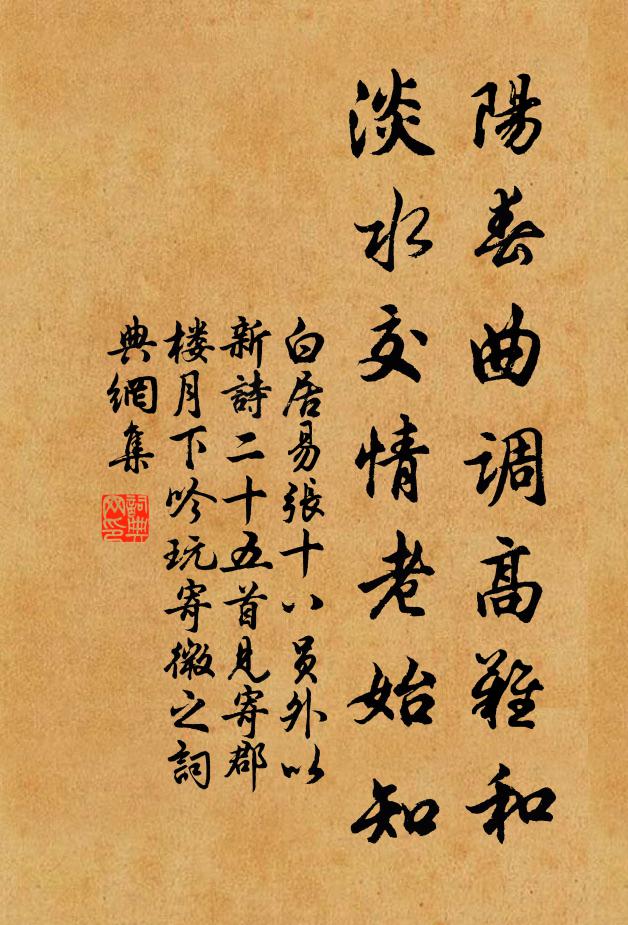 陽春曲調高難和
淡水交情老始知
白居易張十八員外以
新詩二十五首見寄郡
楼月下吟玩寄微之詞
典網集
詞典
网印